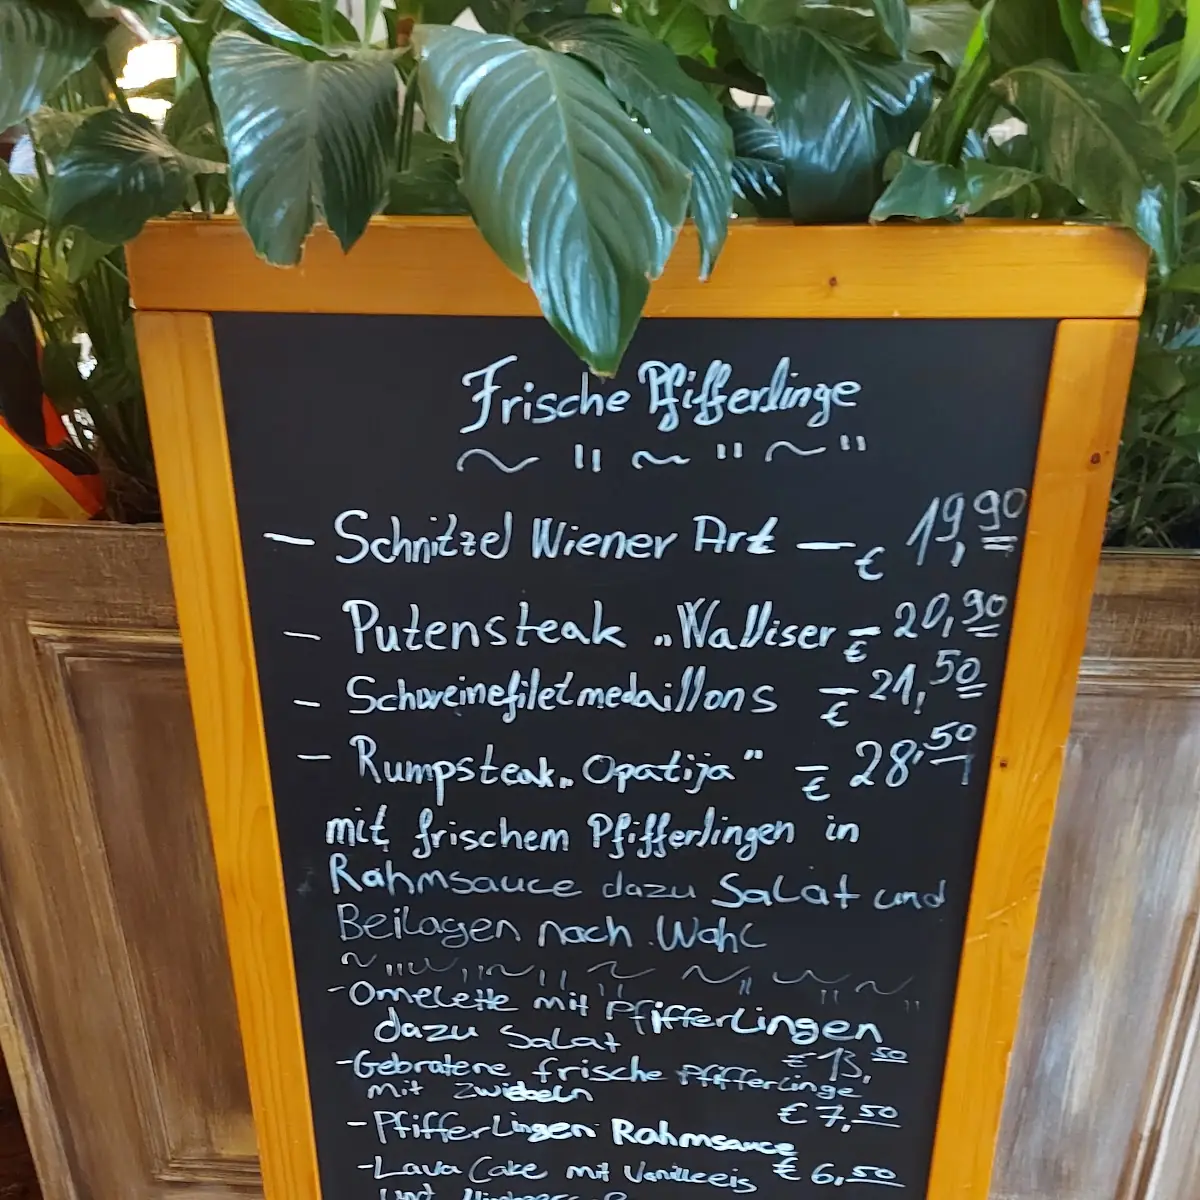 Frische Pfifferlinge
~ " ~ " ~ "
— Schnitzel Wiener Art — € 19,90
— Putensteak „Walliser — € 20,90
— Schweinefiletmedaillons — € 21,50
— Rumpsteak „Opatija" — € 28,50
mit frischem Pfifferlingen in
Rahmsauce dazu Salat und
Beilagen nach Wahl
- Omelette mit Pfifferlingen
dazu Salat
€ 13,50
- Gebratene frische Pfifferlinge
mit Zwiebeln
€ 7,50
- Pfifferlingen Rahmsauce
€ 6,50
- Lava Cake mit Vanilleeis
und